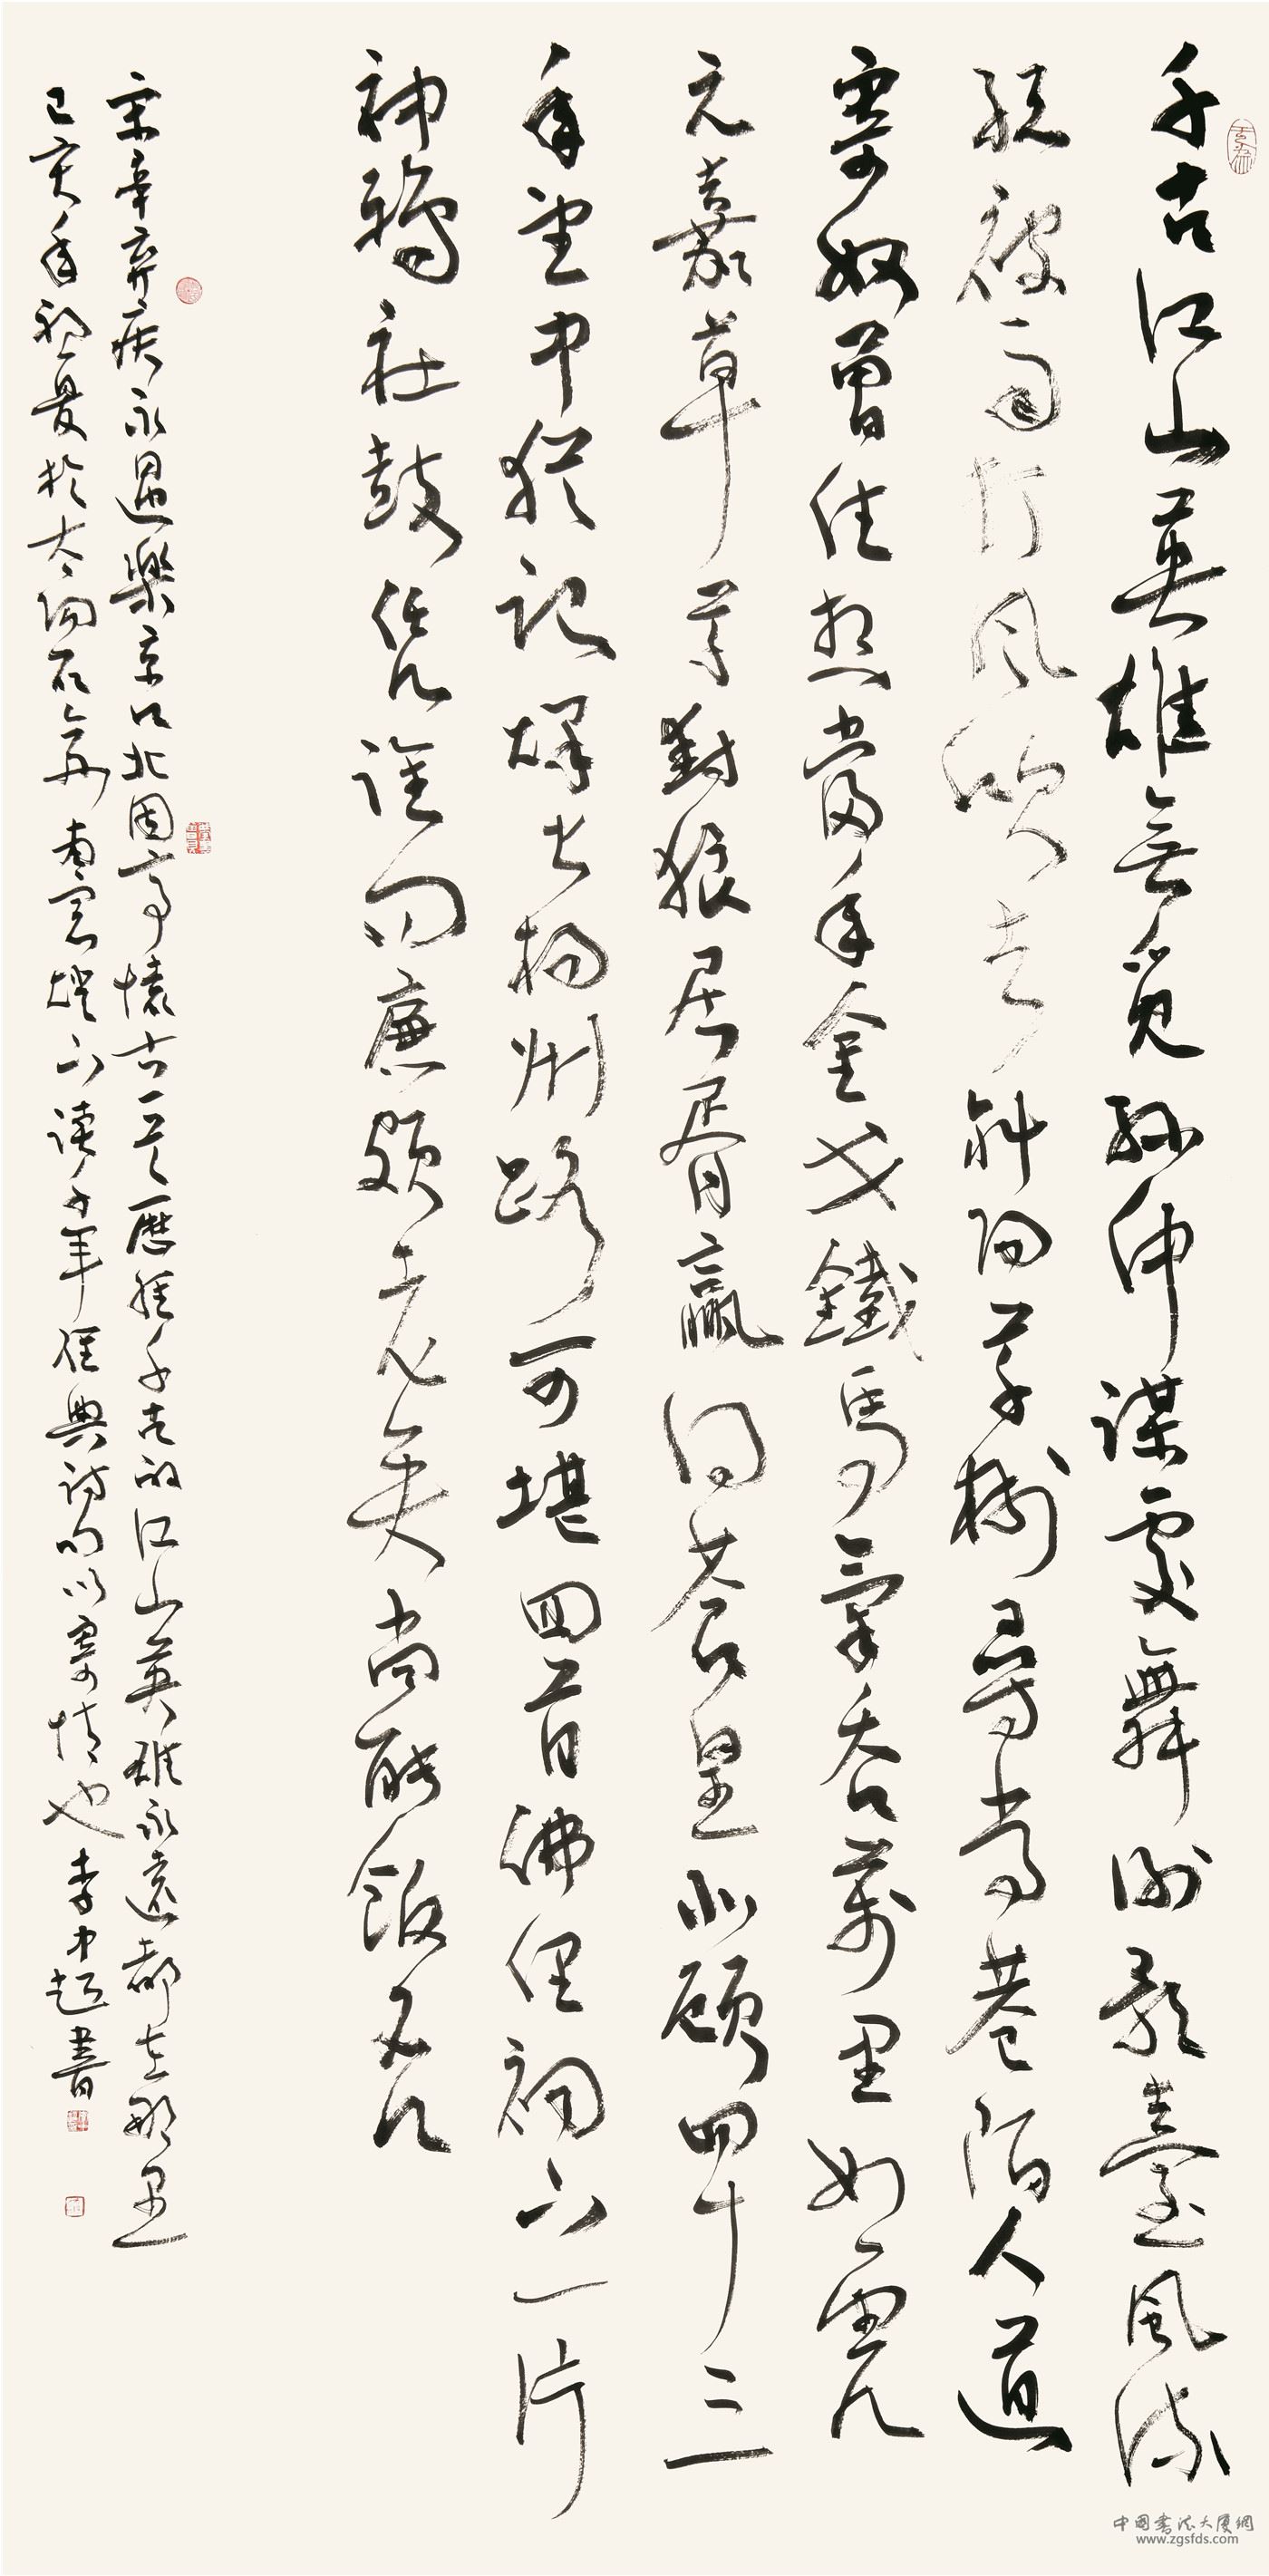 千古江山英雄無覓孫仲謀處舞榭歌臺風流
總被雨打風吹去斜陽草樹尋常巷陌人道
寄奴曾住想當年金戈鐵馬氣吞萬里如虎
元嘉草草封狼居胥贏得蒼皇北顧四十三
年望中猶記烽火揚州路可堪回首佛俚祠下一片
神鴉社鼓凭誰問廉頗老矣尚能飯否
宋辛棄疾永遇樂京口北固亭懷古歷經千古的江山英雄永遠都在那里
己亥年初夏於太陽石齋南窗燈下讀千年經典詩句以寄情也李中超書
中國書法大廈網
www.zgsfds.com